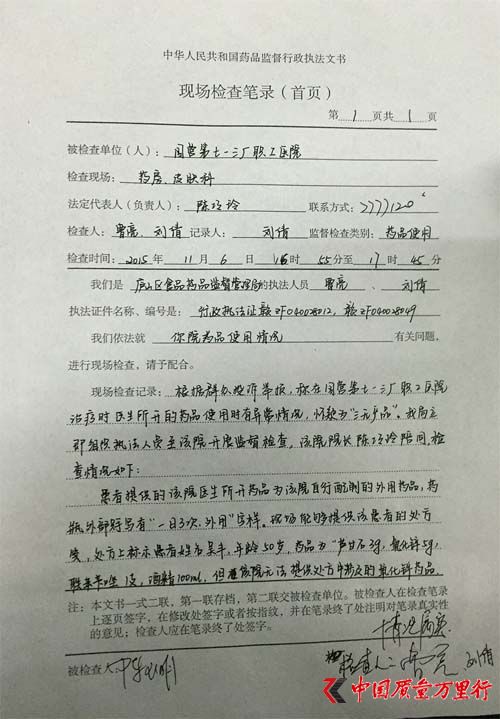 中华人民共和国药品监督行政执法文书
现场检查笔录（首页）
第 1 页共 1 页
被检查单位（人）：国营第七一三厂职工医院
检查现场：药房、皮肤科
法定代表人（负责人）：陈玲玲 联系方式：7777120
检查人：曹亮、刘倩 记录人：刘倩 监督检查类别：药品使用
检查时间：2015 年 11 月 6 日 16 时 55 分至 17 时 45 分
我们是 庐山区食品药品监督管理局的执法人员 曹亮、刘倩
执法证件名称、编号是：行政执法证赣ZF040028012，赣ZF040028049
我们依法就 你院药品使用情况 有关问题，
进行现场检查，请予配合。
现场检查记录：根据群众投诉举报，称在国营第七一三厂职工医院
治疗时医生所开的药品使用时有异常情况，怀疑为“三无产品”。我局立
即组织执法人员至该院开展监督检查，该院院长陈玲玲陪同，检
查情况如下：
患者提供的该院医生所开药品为该院自行配制的外用药品，药
瓶外部标写有“一日3次，外用”字样。现场能够提供该患者的处方
笺，处方上标示患者姓名吴丰，年龄50岁，药品为“芦甘石3g，氧化锌5g，
1支，酒精100ml，但该院无法提供处方中涉及的氧化锌药品。
注：本文书一式二联，第一联存档，第二联交被检查单位。被检查人在检查笔录
上逐页签字，在修改处签字或者按指纹，并在笔录终了处注明对笔录真实性
的意见；检查人应在笔录终了处签字。
情况属实
被检查人 检查人：曹亮 刘倩
中国质量万里行